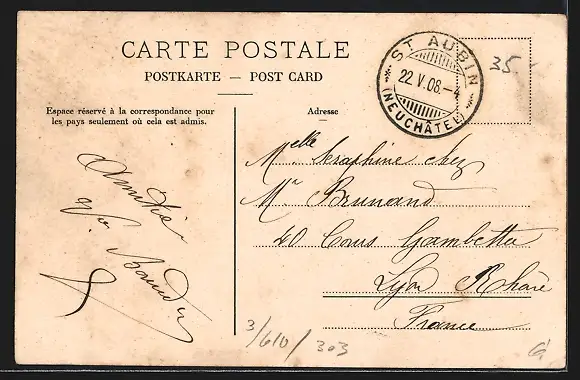 CARTE POSTALE
POSTKARTE — POST CARD
Espace réservé à la correspondance pour
les pays seulement où cela est admis.
Adresse
ST AUBIN
22.V.08.–4
(NEUCHÂTEL)
35.-
Amitié
Melle Séraphine chez
Mr Brunand
40 Cours Gambetta
Lyon Rhône
France
3/610/303